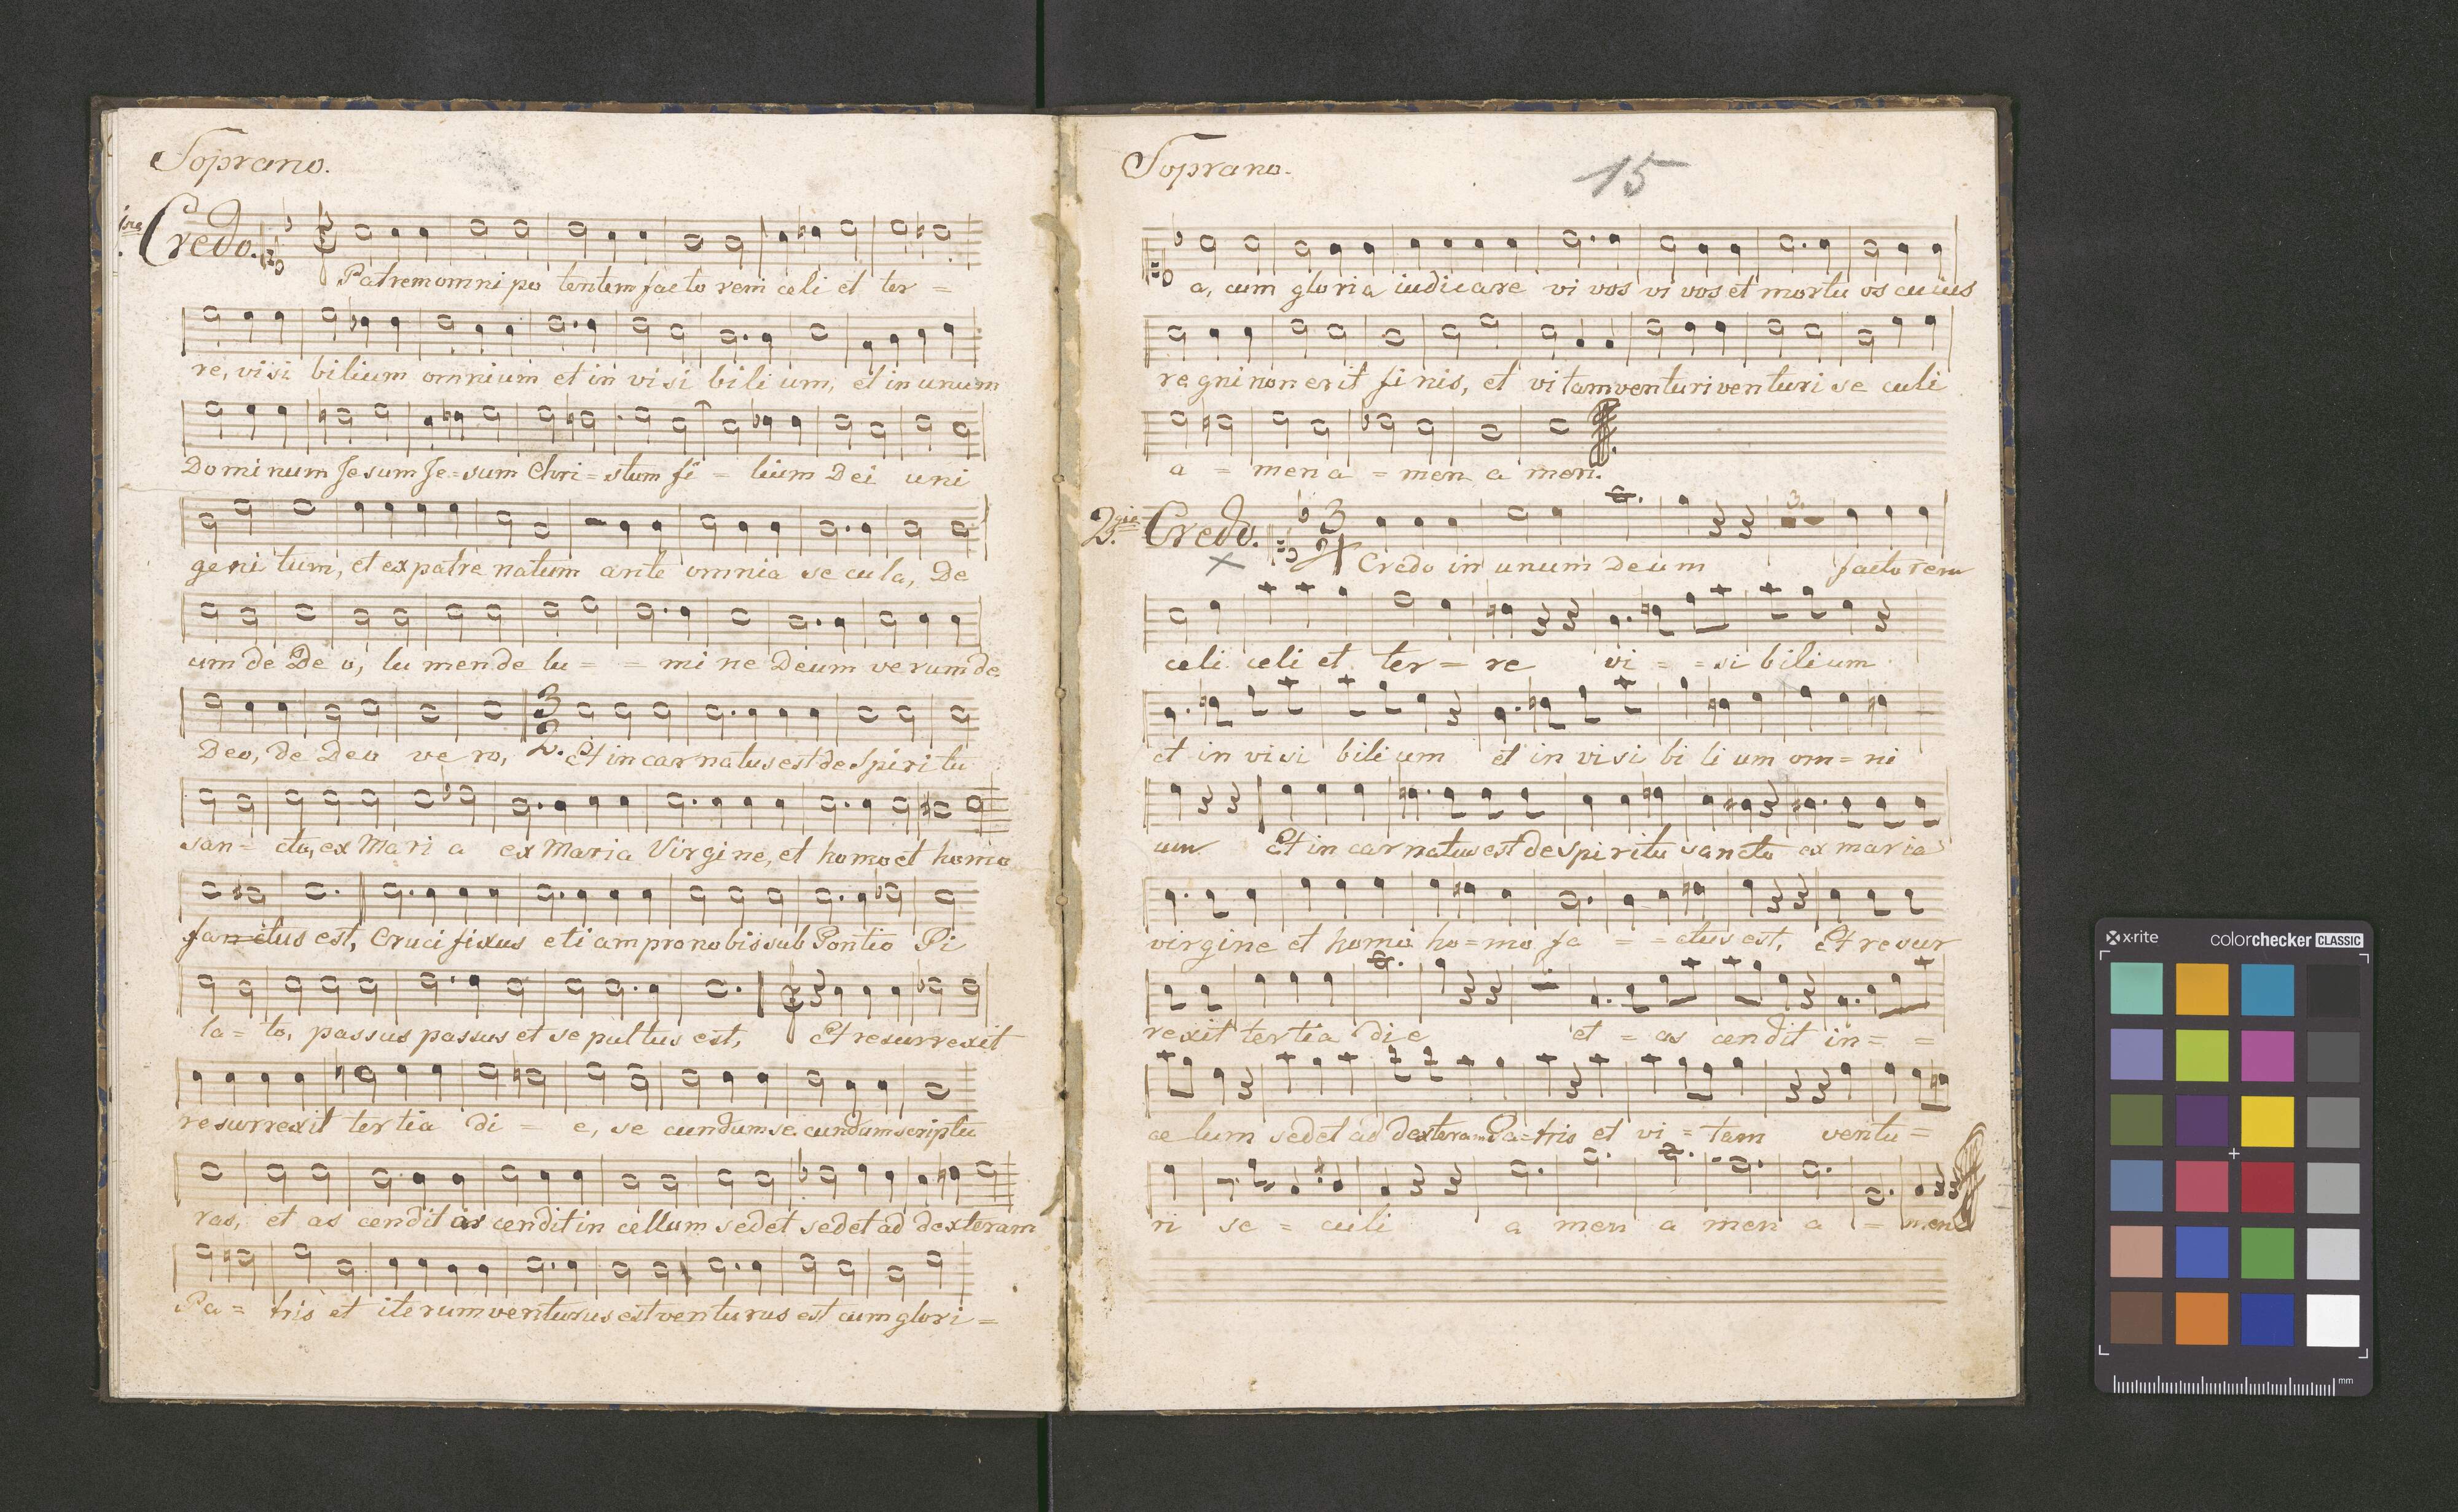 Soprano.
1re Credo.
Patrem omni po tentem facto rem celi et ter =
re, visi bilium omnium et in visi bili um, et in unum
Dominum Jesum Je=sum Chri=stum fi = lium Dei uni
geni tum, et ex patre natum ante omnia se cula, De
um de De o, lu men de lu = = mi ne Deum verum de
Deo, de Deo ve ro, 3 2. Et in carnatus est de Spiri tu
san = cto, ex Mari a ex Maria Virgine, et homo et homo
fanctus est, Cruci fixus eti am pro nobis sub Pontio Pi
la = to, passus passus et se pultus est, Et resurrexit
resurrexit tertia di = e, se cundum se cundum scriptu
ras, et as cendit as cendit in cellum sedet sedet ad dexteram
Pa = tris et iterum venturus est venturus est cum glori =
Soprano.
15
a, cum gloria iudicare vi vos vi vos et mortu os cuius
regni non erit fi nis, et vi tam venturi venturi se culi
a = men a = men a men.
2. Credo. 3 4 3.
Credo in unum Deum factorem
celi celi et ter = re vi = = si bilium
et in visi bilium et in visi bi li um om = ni
um Et in carnatus est de spiritu sancto ex maria
virgine et homo ho = mo fa = = ctus est, Et resur
rexit tertia die et = as cendit in = =
ce lum sedet ad dexteram Pa=tris et vi = tam ventu =
ri se = culi a men a men a = men
x-rite colorchecker CLASSIC
mm